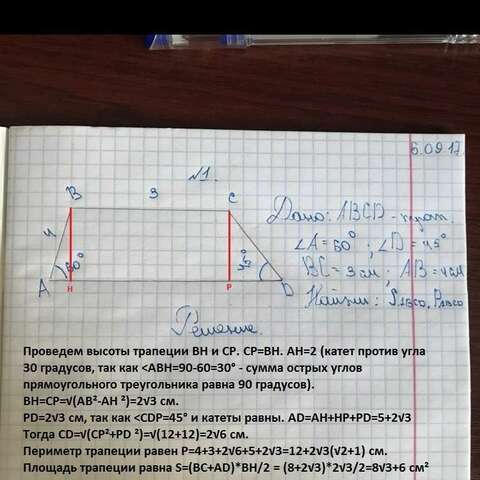 6.09.17
№1.
B 3 C
4
60° 45°
A H P D
Дано: ABCD - трап.
∠A = 60°; ∠D = 45°
BC = 3 см; AB = 4 см
Найти: SABCD, PABCD
Решение.
Проведем высоты трапеции BH и CP. CP=BH. AH=2 (катет против угла
30 градусов, так как <ABH=90-60=30° - сумма острых углов
прямоугольного треугольника равна 90 градусов).
BH=CP=√(AB²-AH ²)=2√3 см.
PD=2√3 см, так как <CDP=45° и катеты равны. AD=AH+HP+PD=5+2√3
Тогда CD=√(CP²+PD ²)=√(12+12)=2√6 см.
Периметр трапеции равен P=4+3+2√6+5+2√3=12+2√3(√2+1) см.
Площадь трапеции равна S=(BC+AD)*BH/2 = (8+2√3)*2√3/2=8√3+6 см²